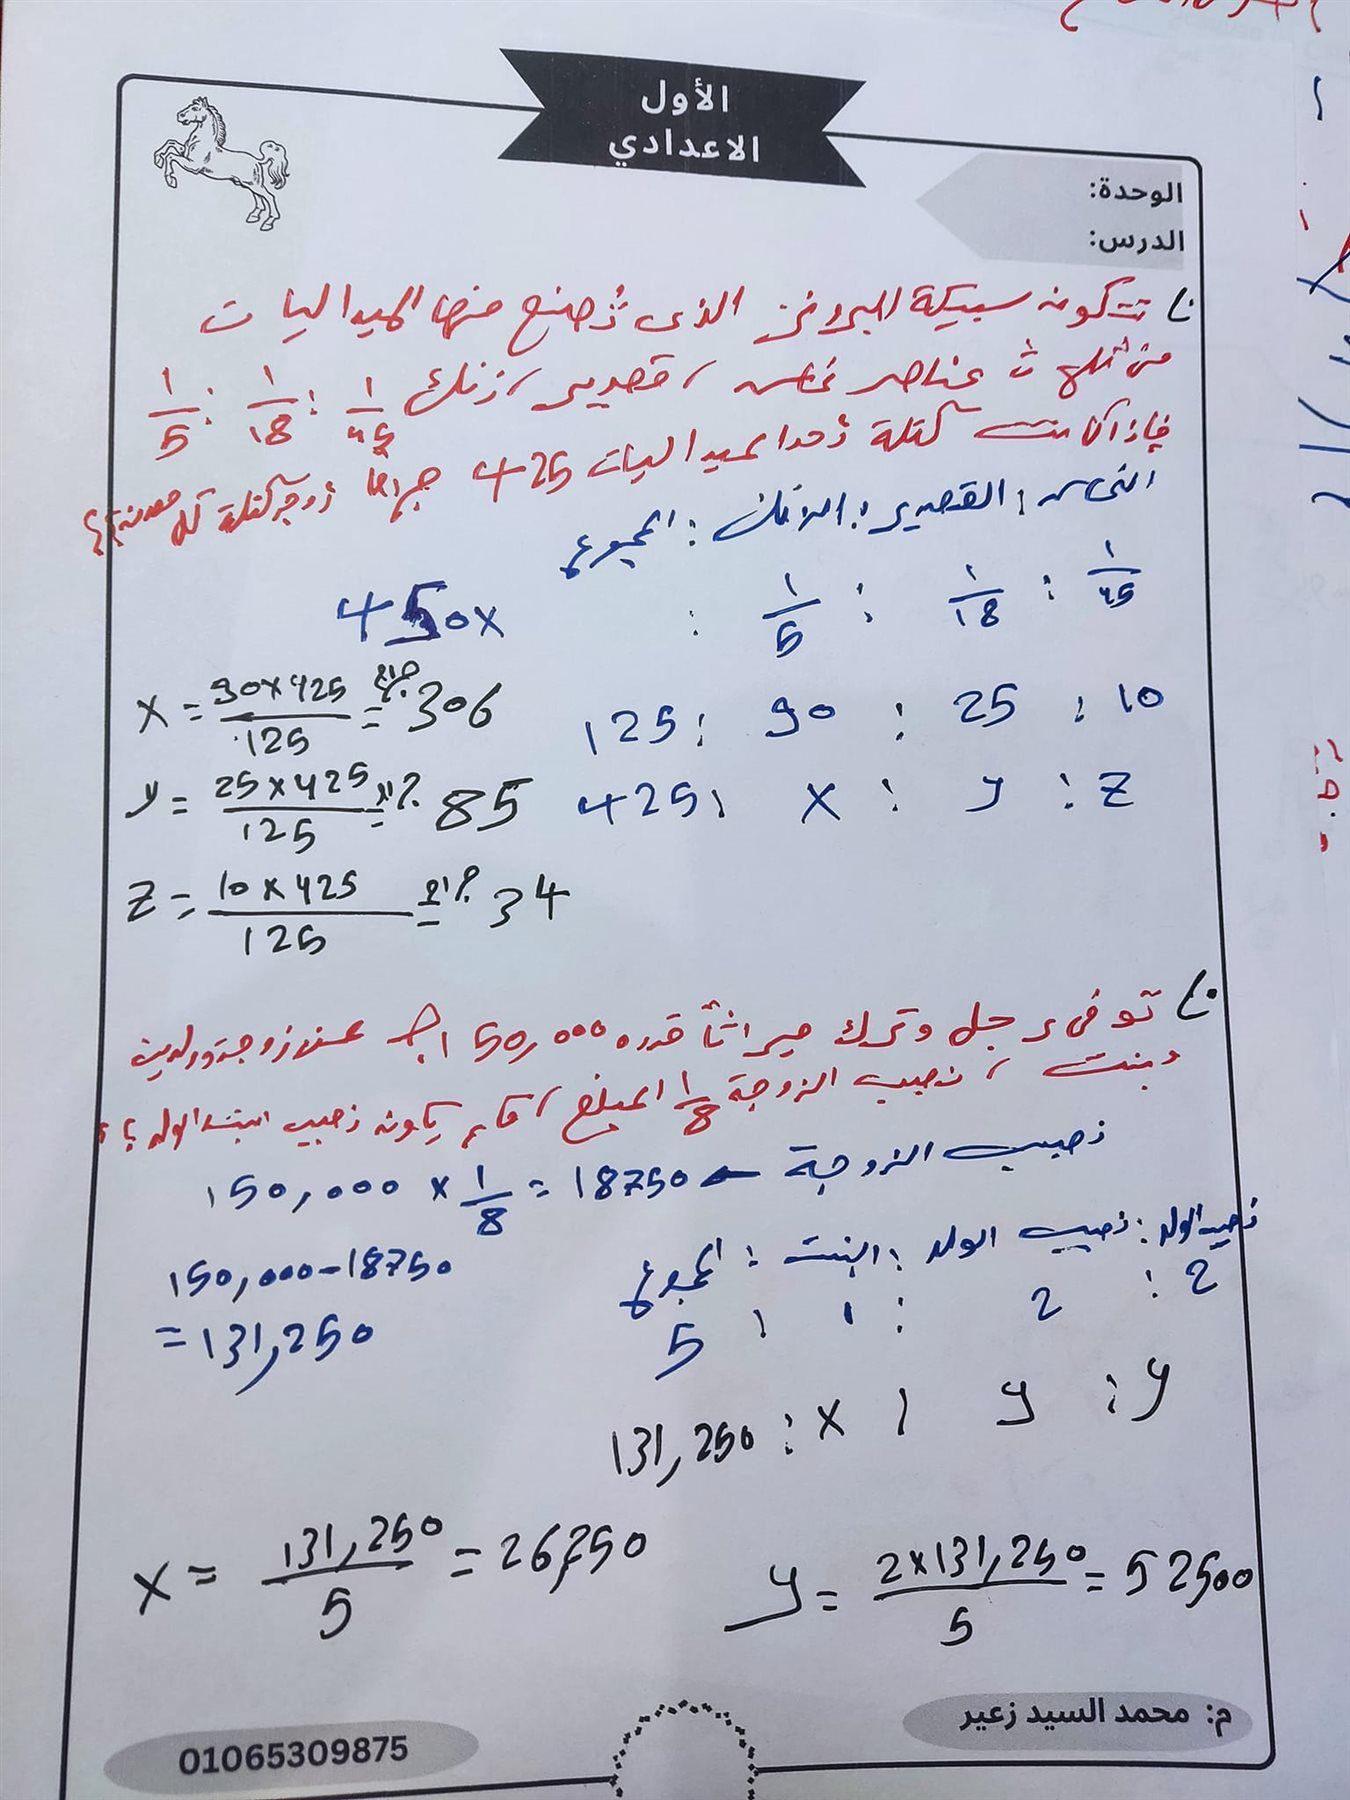 الأول
الاعدادي
الوحدة:
الدرس:
تتكون سبيكة البرونز الذى تُصنع منها الميداليات
من ثلاث عناصر نحاس، قصدير، زنك 1/45 : 1/18 : 1/5
فإذا كانت كتلة أحد الميداليات 425 جرامًا أوجد كتلة كل معدن؟؟
النحاس : القصدير : الزنك : المجموع
1/45 : 1/18 : 1/5 :
450x
10 : 25 : 90 : 125
Z : y : x : 425
x = 90x425/125 = 306 جرام
y = 25x425/125 = 85 جرام
Z = 10x425/125 = 34 جرام
توفى رجل وترك ميراثًا قدره 150,000 جـ عن زوجة وولدين
وبنت، نصيب الزوجة 1/8 المبلغ، فكم يكون نصيب البنت والولد؟؟
نصيب الزوجة ← 150,000 x 1/8 = 18750
نصيب الولد : نصيب الولد : البنت : المجموع
2 : 2 : 1 : 5
150,000-18750
= 131,250
y : y : x : 131,250
x = 131,250/5 = 26,250
y = 2x131,250/5 = 52500
م: محمد السيد زعير
01065309875